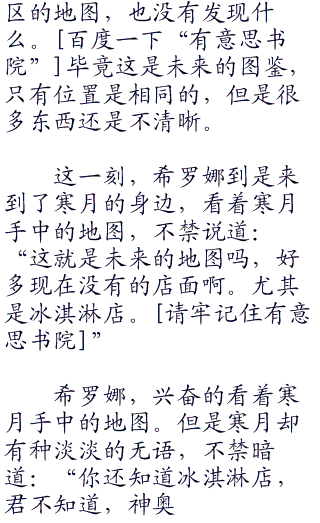 区的地图，也没有发现什
么。[百度一下“有意思书
院”]毕竟这是未来的图鉴，
只有位置是相同的，但是很
多东西还是不清晰。
这一刻，希罗娜到是来
到了寒月的身边，看着寒月
手中的地图，不禁说道：
“这就是未来的地图吗，好
多现在没有的店面啊。尤其
是冰淇淋店。[请牢记住有意
思书院]”
希罗娜，兴奋的看着寒
月手中的地图。但是寒月却
有种淡淡的无语，不禁暗
道：“你还知道冰淇淋店，
君不知道，神奥